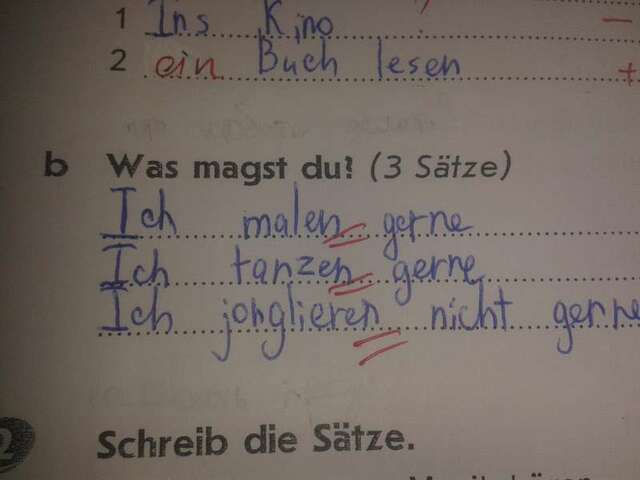 1 Ins Kino
2 ein Buch lesen
b Was magst du? (3 Sätze)
Ich malen gerne
Ich tanzen gerne
Ich jonglieren nicht gerne
Schreib die Sätze.